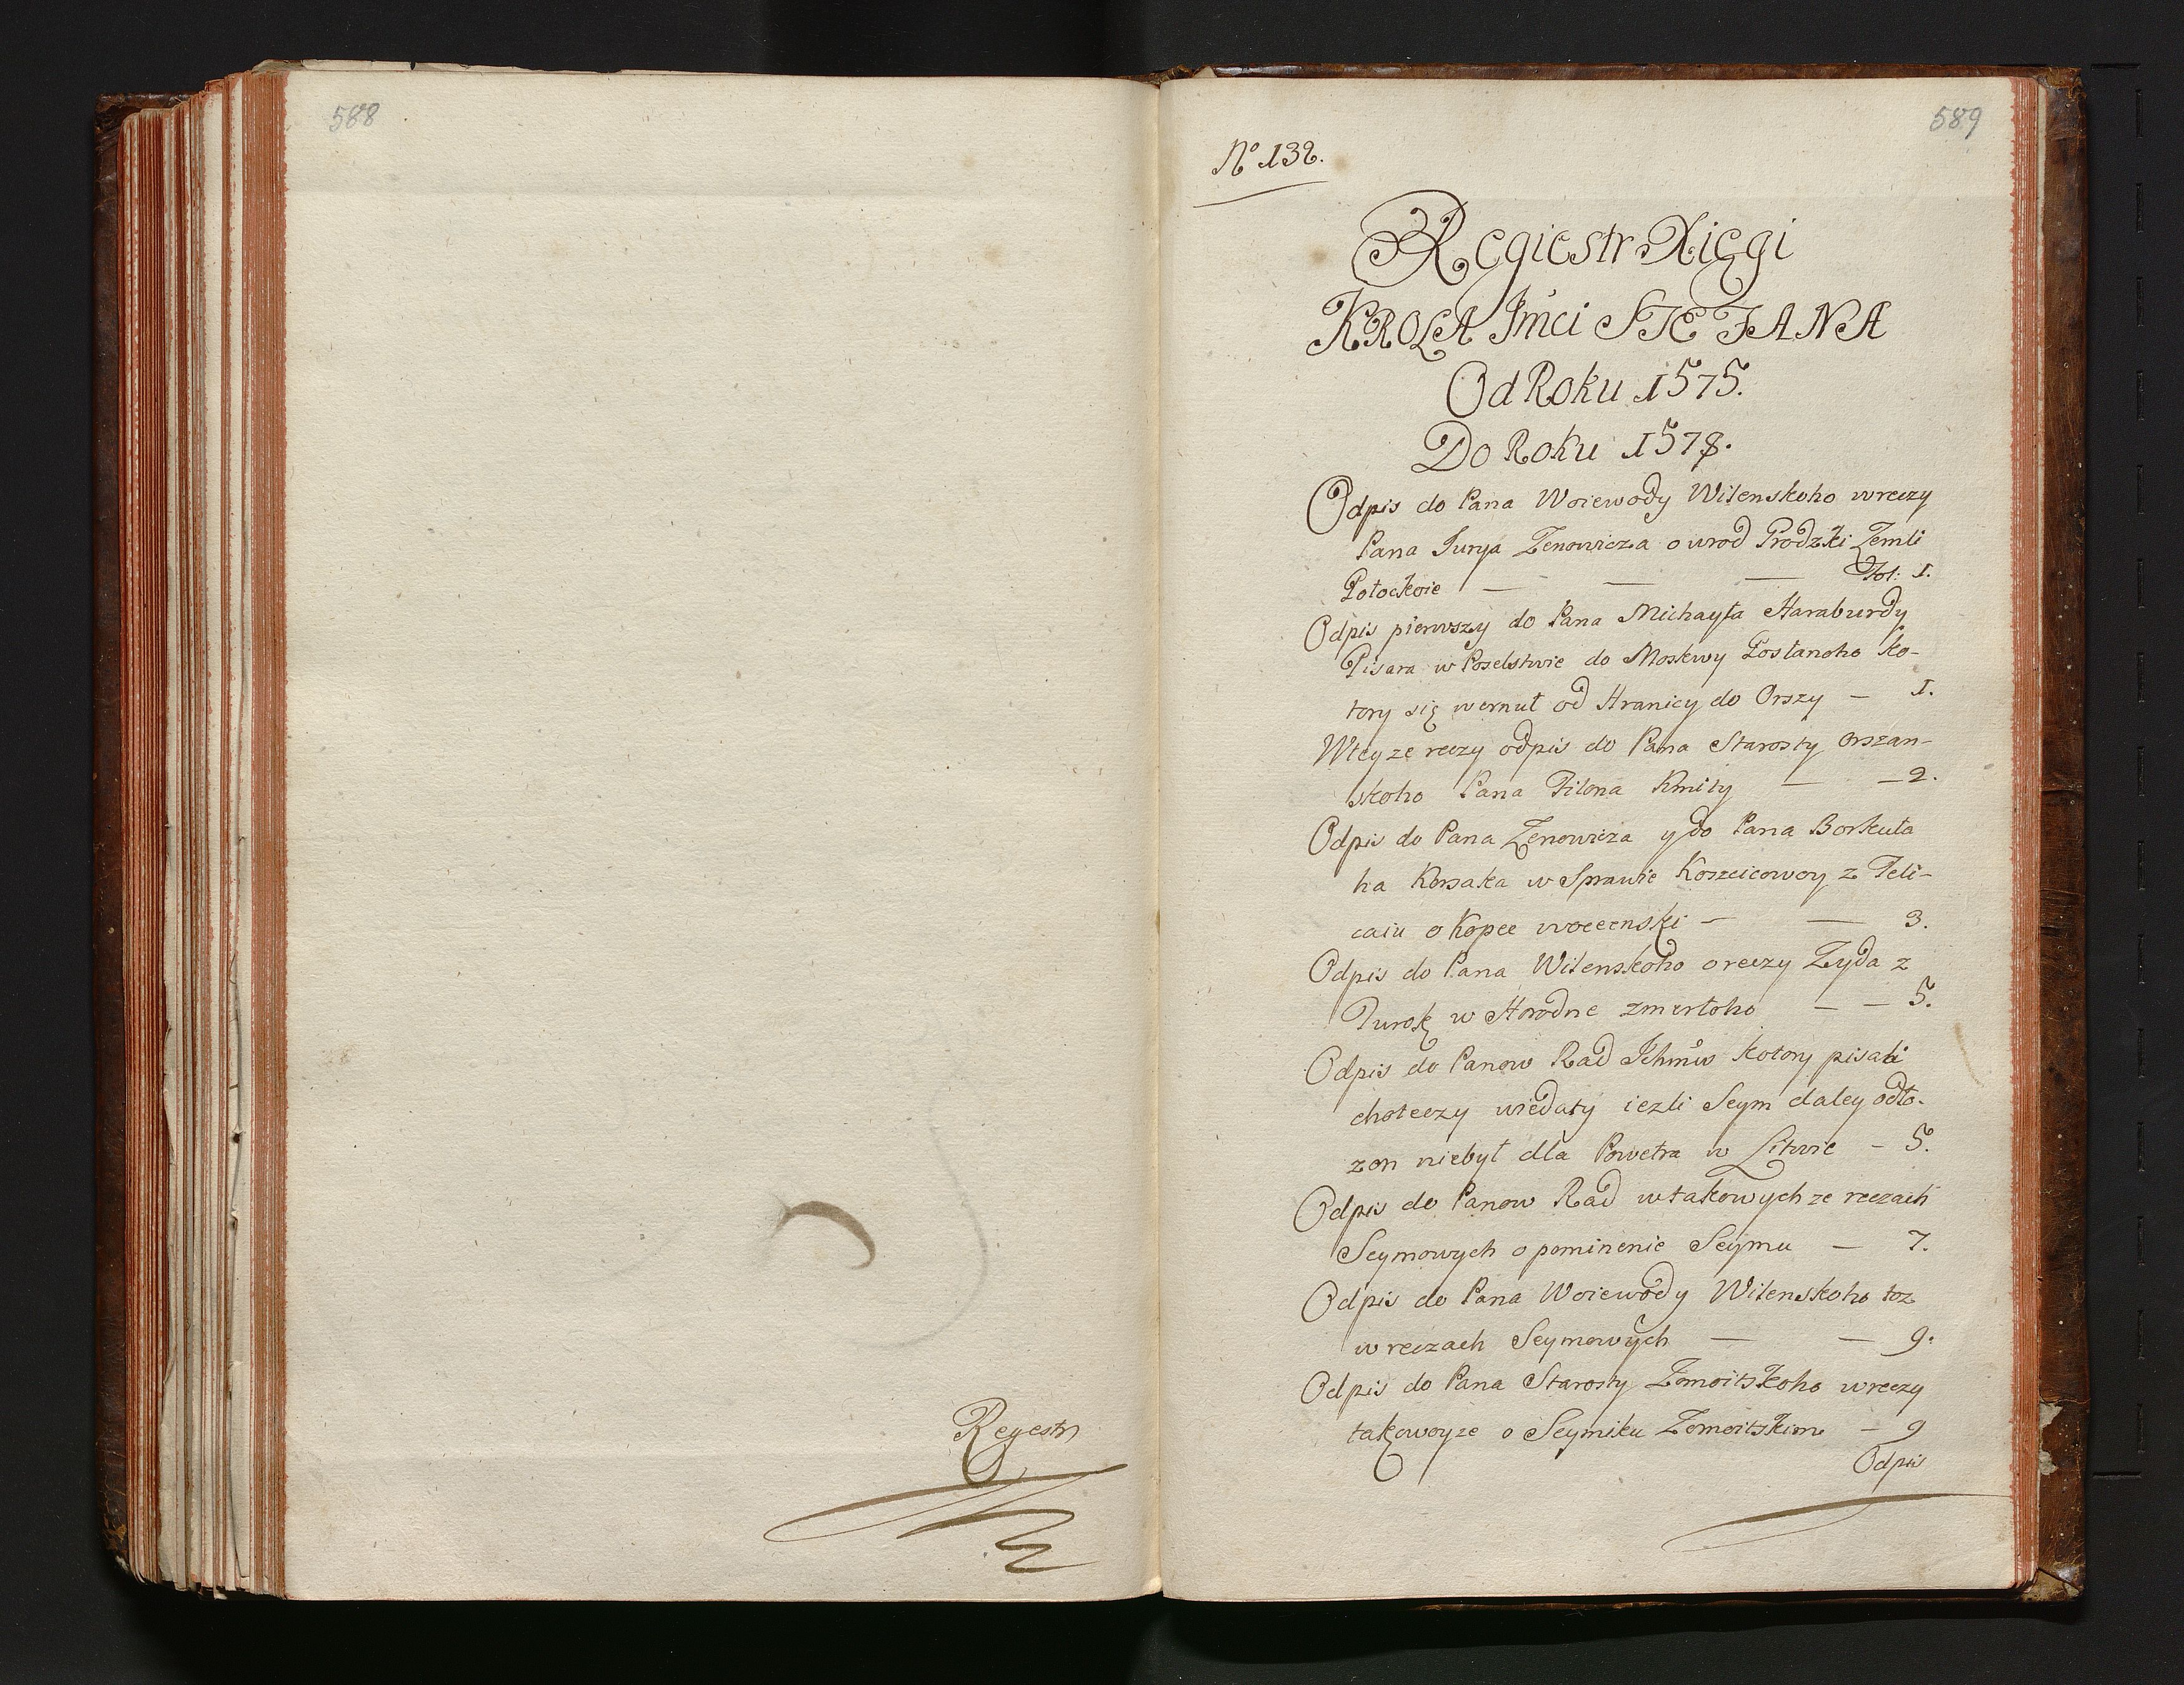 588
Regestr
589
No 132.
Regiestr Xięgi
KROLA Jmci STEFANA
Od Roku 1575.
Do Roku 1578.
Odpis do Pana Woiewody Wilenskoho wreczy
Pana Jurya Zenowicza o wrod Prodzki Zemli
Połockoie — — — Fol: 1.
Odpis pierwszy do Pana Michayła Haraburdy
Pisara w Poselstwie do Moskwy Posłanoho ko-
tory się wernuł od Hranicy do Orszy — 1.
Wteyze reczy odpis do Pana Starosty Orszan-
skoho Pana Filona Kmity — — 2.
Odpis do Pana Zenowicza y do Pana Borkuła
ha Korsaka w Sprawie Koszcicowoy z Feli-
caiu o Kopee — — 3.
Odpis do Pana Wilenskoho o reczy Zyda z
Turok w Horodne zmerłoho — — 5.
Odpis do Panow Rad Ichmw kotory pisali
choteczy wiedaty iezli Seym daley odło-
zon niebył dla Powetra w Litwie — 5.
Odpis do Panow Rad wtakowych ze reczach
Seymowych o pominenie Seymu — 7.
Odpis do Pana Woiewody Wilenskoho toz
w reczach Seymowych — — 9.
Odpis do Pana Starosty Zomoitskoho wreczy
takowoyze o Seymiku Zomoitskim — 9
Odpis